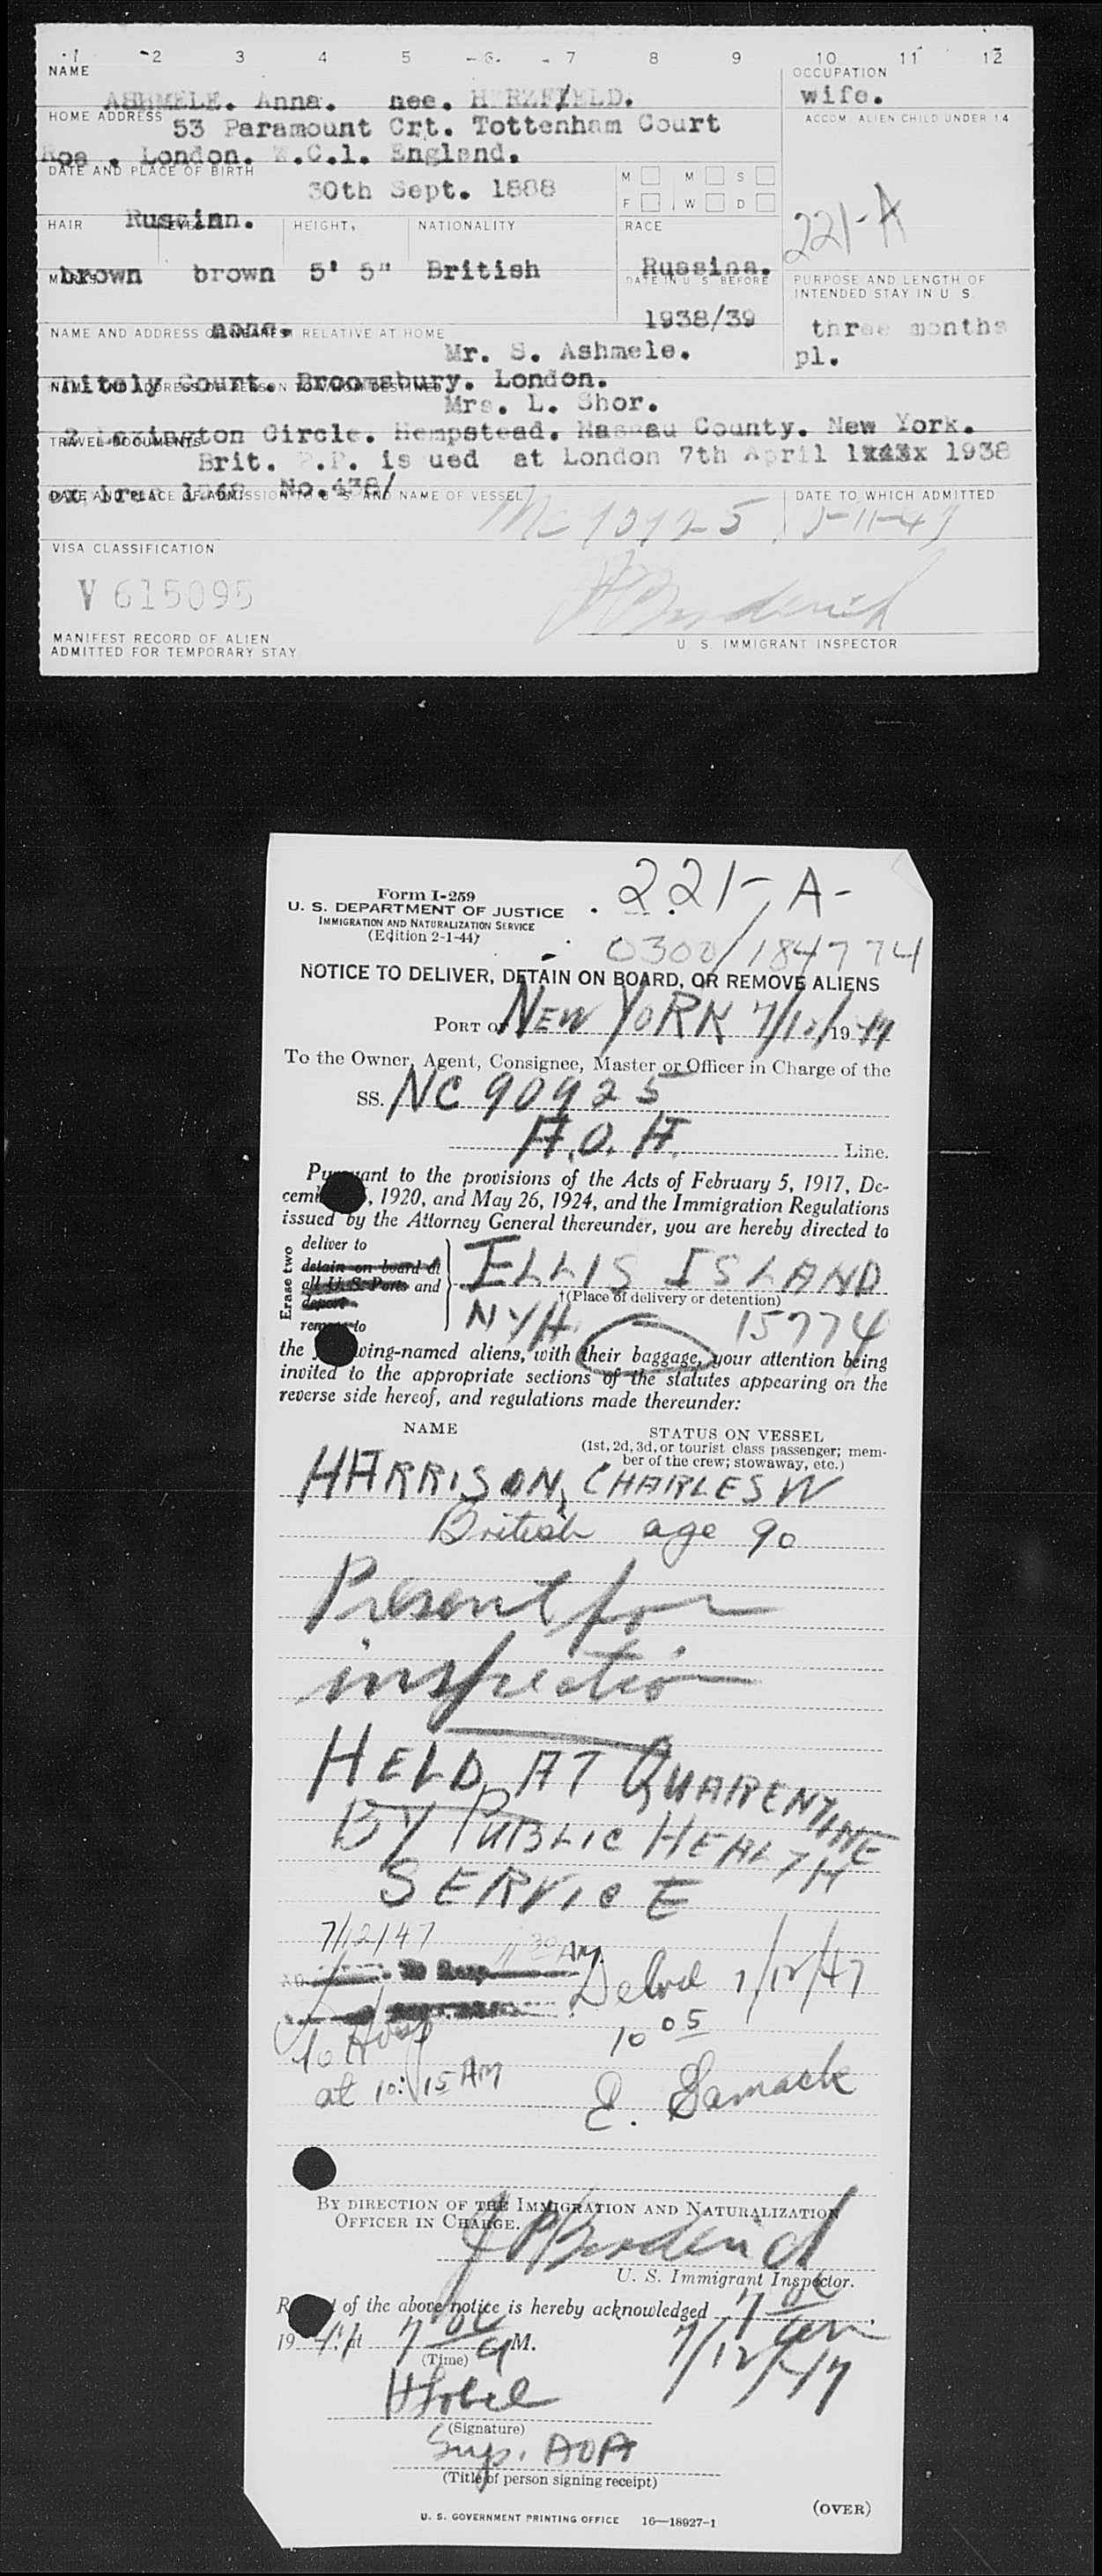 1 2 3 4 5 6 7 8 9 10 11 12
NAME
OCCUPATION
ASHMELE. Anna. nee. H RZFIELD.
wife.
HOME ADDRESS
53 Paramount Crt. Tottenham Court
ACCOM. ALIEN CHILD UNDER 14
London. W.C.1. England.
DATE AND PLACE OF BIRTH
30th Sept. 1888
M M S
F W D
221-A
Russian.
HAIR HEIGHT, NATIONALITY RACE
brown brown 5' 5" British Russina.
MARKS
DATE IN U S BEFORE
PURPOSE AND LENGTH OF
INTENDED STAY IN U S
none.
1938/39
three months
pl.
NAME AND ADDRESS OF NEAREST RELATIVE AT HOME
Mr. S. Ashmele.
Court. Broomsbury. London.
NAME AND ADDRESS OF PERSON TO WHOM DESTINED
Mrs. L. Shor.
2 Lexington Circle. Hempstead. Nassau County. New York.
TRAVEL DOCUMENTS
Brit. P.P. is ued at London 7th April 1938
No.438/
DATE AND PLACE OF ADMISSION TO U S AND NAME OF VESSEL
DATE TO WHICH ADMITTED
VISA CLASSIFICATION
V 615095
MANIFEST RECORD OF ALIEN
ADMITTED FOR TEMPORARY STAY
U. S. IMMIGRANT INSPECTOR
221-A-
Form I-259
U. S. DEPARTMENT OF JUSTICE
IMMIGRATION AND NATURALIZATION SERVICE
(Edition 2-1-44)
0300/184774
NOTICE TO DELIVER, DETAIN ON BOARD, OR REMOVE ALIENS
PORT OF NEW YORK 7/12/1947
To the Owner, Agent, Consignee, Master or Officer in Charge of the
SS. NC 90925
A.O.A. Line.
Pursuant to the provisions of the Acts of February 5, 1917, De-
cember 5, 1920, and May 26, 1924, and the Immigration Regulations
issued by the Attorney General thereunder, you are hereby directed to
Erase two
deliver to
detain on board at
all U.S. Ports and
deport
remove to
ELLIS ISLAND
†(Place of delivery or detention)
NYH 15774
the following-named aliens, with their baggage, your attention being
invited to the appropriate sections of the statutes appearing on the
reverse side hereof, and regulations made thereunder:
NAME
STATUS ON VESSEL
(1st, 2d, 3d, or tourist class passenger; mem-
ber of the crew; stowaway, etc.)
HARRISON, CHARLES W
British age 90
Present for
inspection
HELD AT QUARENTINE
BY PUBLIC HEALTH
SERVICE
7/12/47
AM.
Delvd 7/12/47
10 05
To Hosp
at 10:15 AM
E.
BY DIRECTION OF THE IMMIGRATION AND NATURALIZATION
OFFICER IN CHARGE.
U. S. Immigrant Inspector.
Receipt of the above notice is hereby acknowledged
1947 at 7 00 A M.
(Time)
7/12/47
(Signature)
Sup. AOA
(Title of person signing receipt)
(OVER)
U. S. GOVERNMENT PRINTING OFFICE 16—18927-1